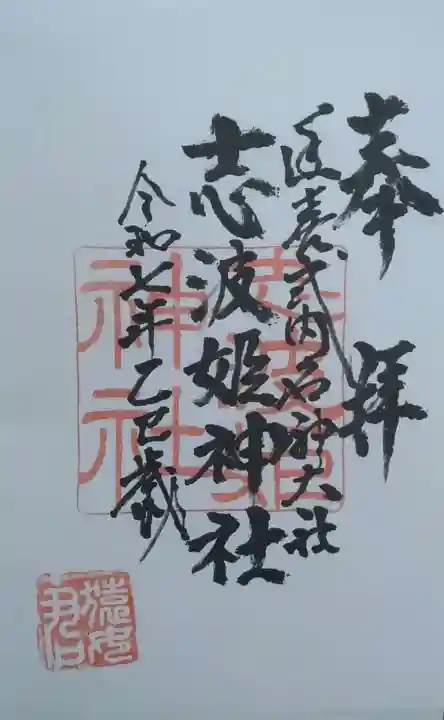 奉拝
延喜式内名神大社
志波姫神社
令和七年乙巳歳
志波姫神社